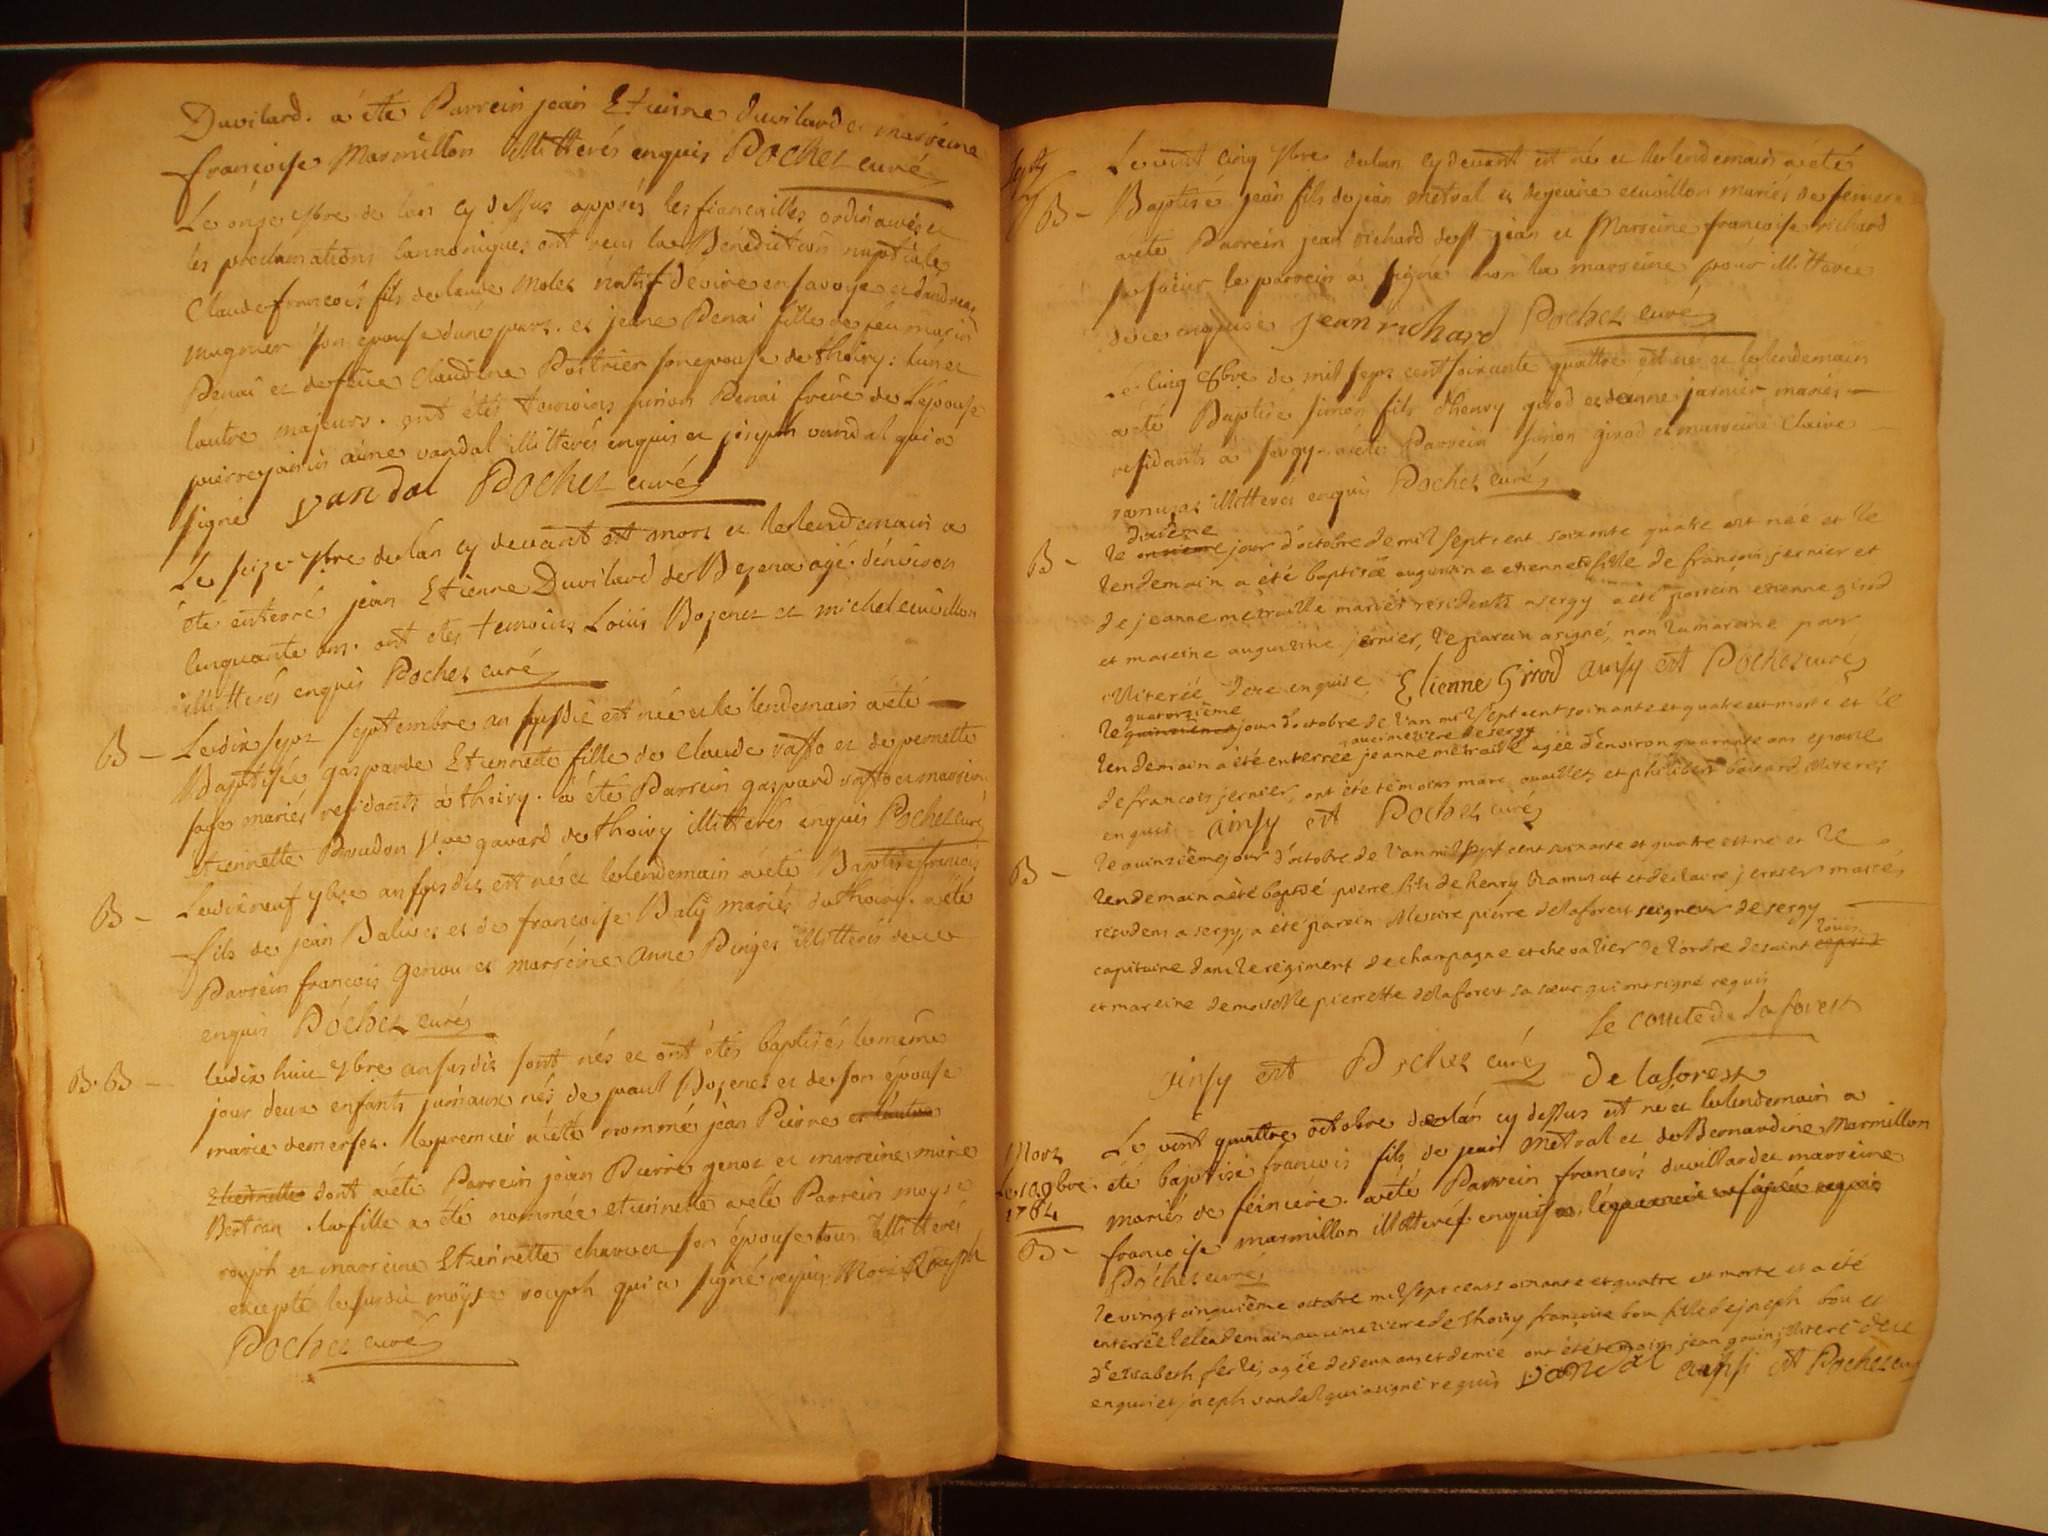 Duvilard. a été Parrein jean Etienne Duvilard et marreine
françoise Marmillon illitterés enquis Pochet curé
Le onze 7bre de lan cy dessus apprés les fiancailles ordinaires et
les proclamations cannoniques ont recu la Bénédiction nuptiale
Claude françois fils de claude Molez natif de vire en savoye et dandreaz
mugnier son epouse dune part. et jeane Penai fille de feu marin
Penai et de feue Claudine Poitrier son epouse de thoiry: lun et
lautre majeurs. ont étés temoins simon Penai frère de L'epouse
pierre aime vandal illitterés enquis et joseph vandal qui a
signé vandal Pochet curé
Le seize 7bre de lan cy devant est mort et le lendemain a
été enterré jean Etienne Duvilard de Bezena agé d'environ
cinquante ans. ont etés temoins Loüis Bozenet et michel ecuvillon
illitterés enquis Pochet curé
B - Le dix sept septembre an susdit est née et le lendemain a été
Baptisée gasparde Etiennette fille de Claude raffo et de pernette
sage mariés residants à thoiry. a été Parrein gaspard raffo et marreine
Etiennette Proudon gavard de thoiry illitterés enquis Pochet curé
B - Le dix neuf 7bre an susdit est né et le lendemain a été Baptisé françois
fils de jean Balivet et de françoise Baly mariés de thoiry. a été
Parrein françois Genou et marreine anne Pinget illitterés de ce
enquis Pochet curé
B. B - Le dix huit 7bre an susdit sont nés et ont étés baptisés le même
jour deux enfants jumeaux nés de paul Bozenet et de son épouse
marie demerse. le premier a été nommé jean Pierre et lautre
Etiennette dont a été Parrein jean Pierre genoz et marreine marie
Bertran. la fille a été nommée etiennette a été Parrein moyse
rouph et marreine Etiennette charvet son épouse tous illitterés
excepté le susdit moÿse rouph qui a signé requis Moïse Rouph
Pochet curé
B - Le vint cinq 7bre de lan cy devant est né et le lendemain a été
Baptisé jean fils de jean métral et de jeanne ecuvillon mariés de feniere
a été Parrein jean richard de st jean et Marreine françoise richard
sa soeur le parrein a signé non la marreine pour illitterée
de ce enquise jean richard Pochet curé
Le cinq 8bre de mil sept cent soixante quattre est né et le lendemain
a été Baptisé simon fils d'henry girod et d'anne jarnier mariés
residants à sergy a été Parrein simon girod et marreine Claire
ramuzat illitterés enquis Pochet curé
dixième
B - le onzième jour d'octobre de mil sept cent soixante quatre est née et le
lendemain a été baptisée augustine etiennette fille de françois jernier et
de jeanne metraille mariés residents a sergy a été parrein etienne girod
et mareine augustine jernier, le parein a signé, non la mareine pour
illiterée de ce enquise Etienne Girod ainsy est Pochet curé
quatorzième
le quinzième jour d'octobre de l'an mil sept cent soixante et quatre est morte et le
au cimetiere de sergy
lendemain a été enterrée jeanne metraille agée d'environ quarante ans epouse
de françois jernier, ont été témoins marc ouaillet et philibert boisard illiterés
enquis ainsy est Pochet curé
B - le quinzième jour d'octobre de l'an mil sept cent soixante et quatre est né et le
lendemain a été baptisé pierre fils de henry Ramusat et de claire jernier mariés
residens a sergy, a été parein Messire pierre delaforest seigneur de sergy
louis
capitaine dans le régiment de champagne et chevalier de l'ordre de saint esprit
et mareine demoiselle pierrette delaforest sa sœur qui ont signé requis
Le comte de Laforest
ainsy est Pochet curé De laforest
Le vint quattre octobre de lan cy dessus est né et le lendemain a
Mort
le 10 9bre
1764
B -
été baptisé françois fils de jean Metral et de Bernardine Marmillon
mariés de feiniere. a été Parrein françois duvillard et marreine
françoise marmillon illitterés enquis
Pochet curé
le vingt cinquième octobre mil sept cens soixante et quatre est morte et a été
enterrée le lendemain au cimetierre de thoiry françoise bou fille de joseph bou et
d'elisabeth ferle, agée de deux ans et demie ont été temoin jean gouin illiteré de ce
enquis et joseph vandal qui a signé requis vandal ainsi est Pochet curé